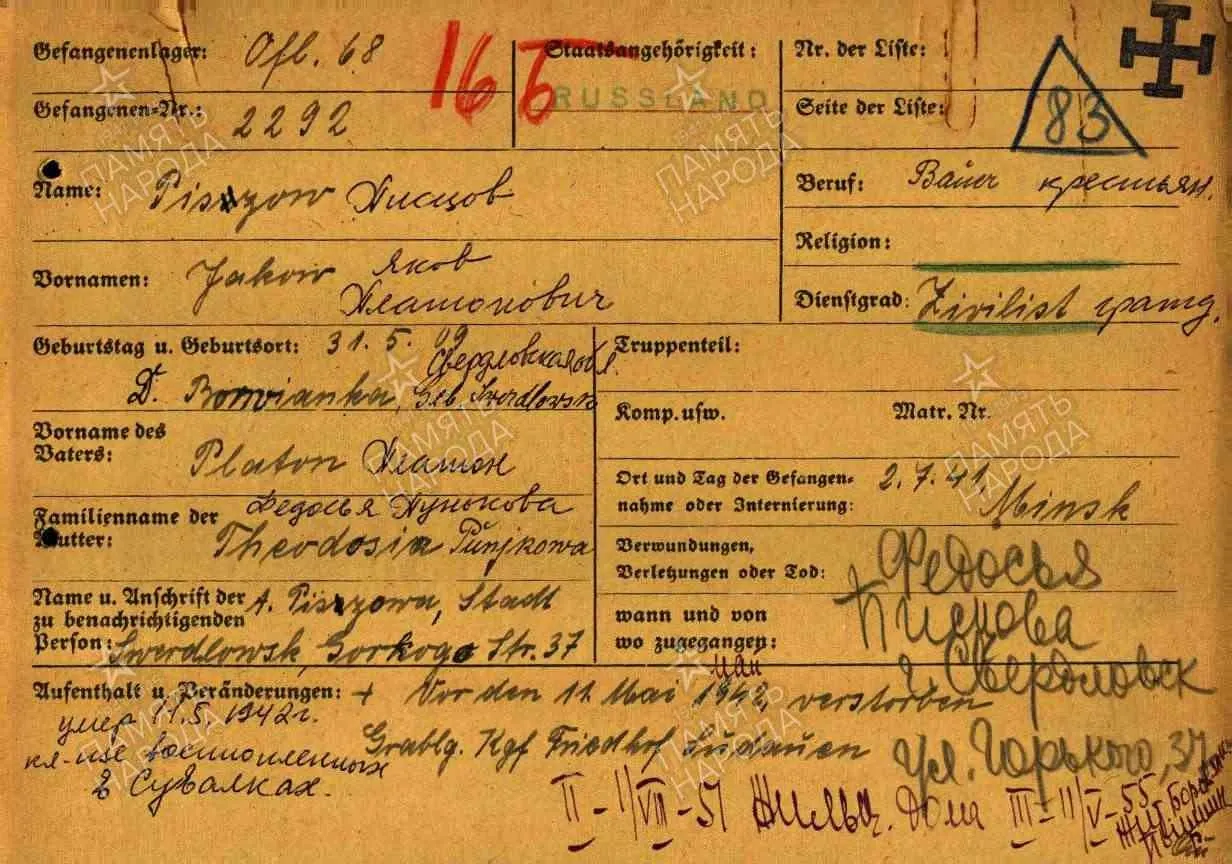 Gefangenenlager: Ofl. 68
16 Б
Staatsangehörigkeit:
RUSSLAND
Nr. der Liste:
Gefangenen-Nr.: 2292
Seite der Liste:
83
Name: Piszow Писцов
Beruf: Bauer крестьян.
Vornamen: Jakow Яков
Платонович
Religion:
Dienstgrad: Zivilist гражд.
Geburtstag u. Geburtsort: 31. 5. 09
Свердловская обл.
D. Borovianka, Geb. Swerdlowsk
Truppenteil:
Komp. usw. Matr. Nr.
Vorname des
Vaters: Platon Платон
Ort und Tag der Gefangen-
nahme oder Internierung: 2. 7. 41 Minsk
Familienname der
Mutter: Федосья Пунькова
Theodosia Punjkowa
Verwundungen,
Verletzungen oder Tod:
Name u. Anschrift der
zu benachrichtigenden
Person: A. Piszowa, Stadt
Swerdlowsk, Gorkogo Str. 37
wann und von
wo zugegangen:
Федосья
Писцова
г. Свердловск
ул. Горького, 37
Aufenthalt u. Veränderungen: + Vor den 11. Mai 1942, verstorben
май
умер 11.5.1942г.
кл-ще военнопленных
в Сувалках.
Grablg. Kgf Friedhof Sudauen
II - 11/VII - 51 Жильц. дома III - 11/V - 55
ПАМЯТЬ
НАРОДА
ПАМЯТЬ
НАРОДА
ПАМЯТЬ
НАРОДА
ПАМЯТЬ
НАРОДА